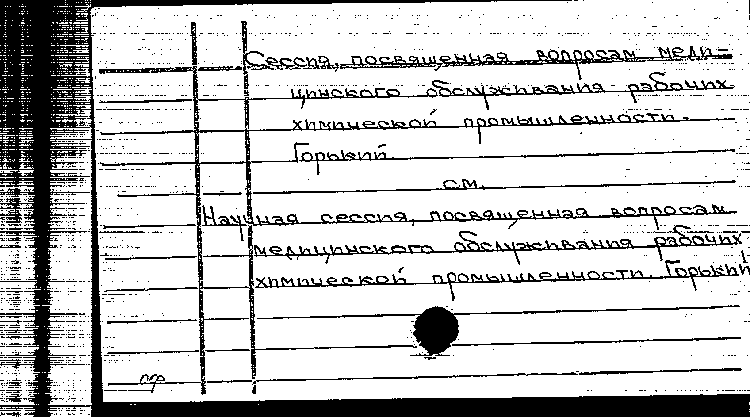 Сессия, посвященная вопросам меди-
цинского обслуживания рабочих
химической промышленности.
Горький.
см.
Научная сессия, посвященная вопросам
медицинского обслуживания рабочих
химической промышленности. Горький